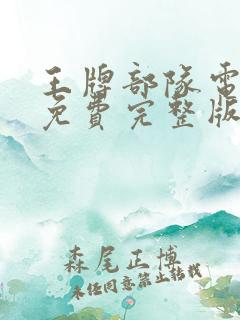 王牌部隊電
免費完整版
森尾正博
未经同意禁止转载